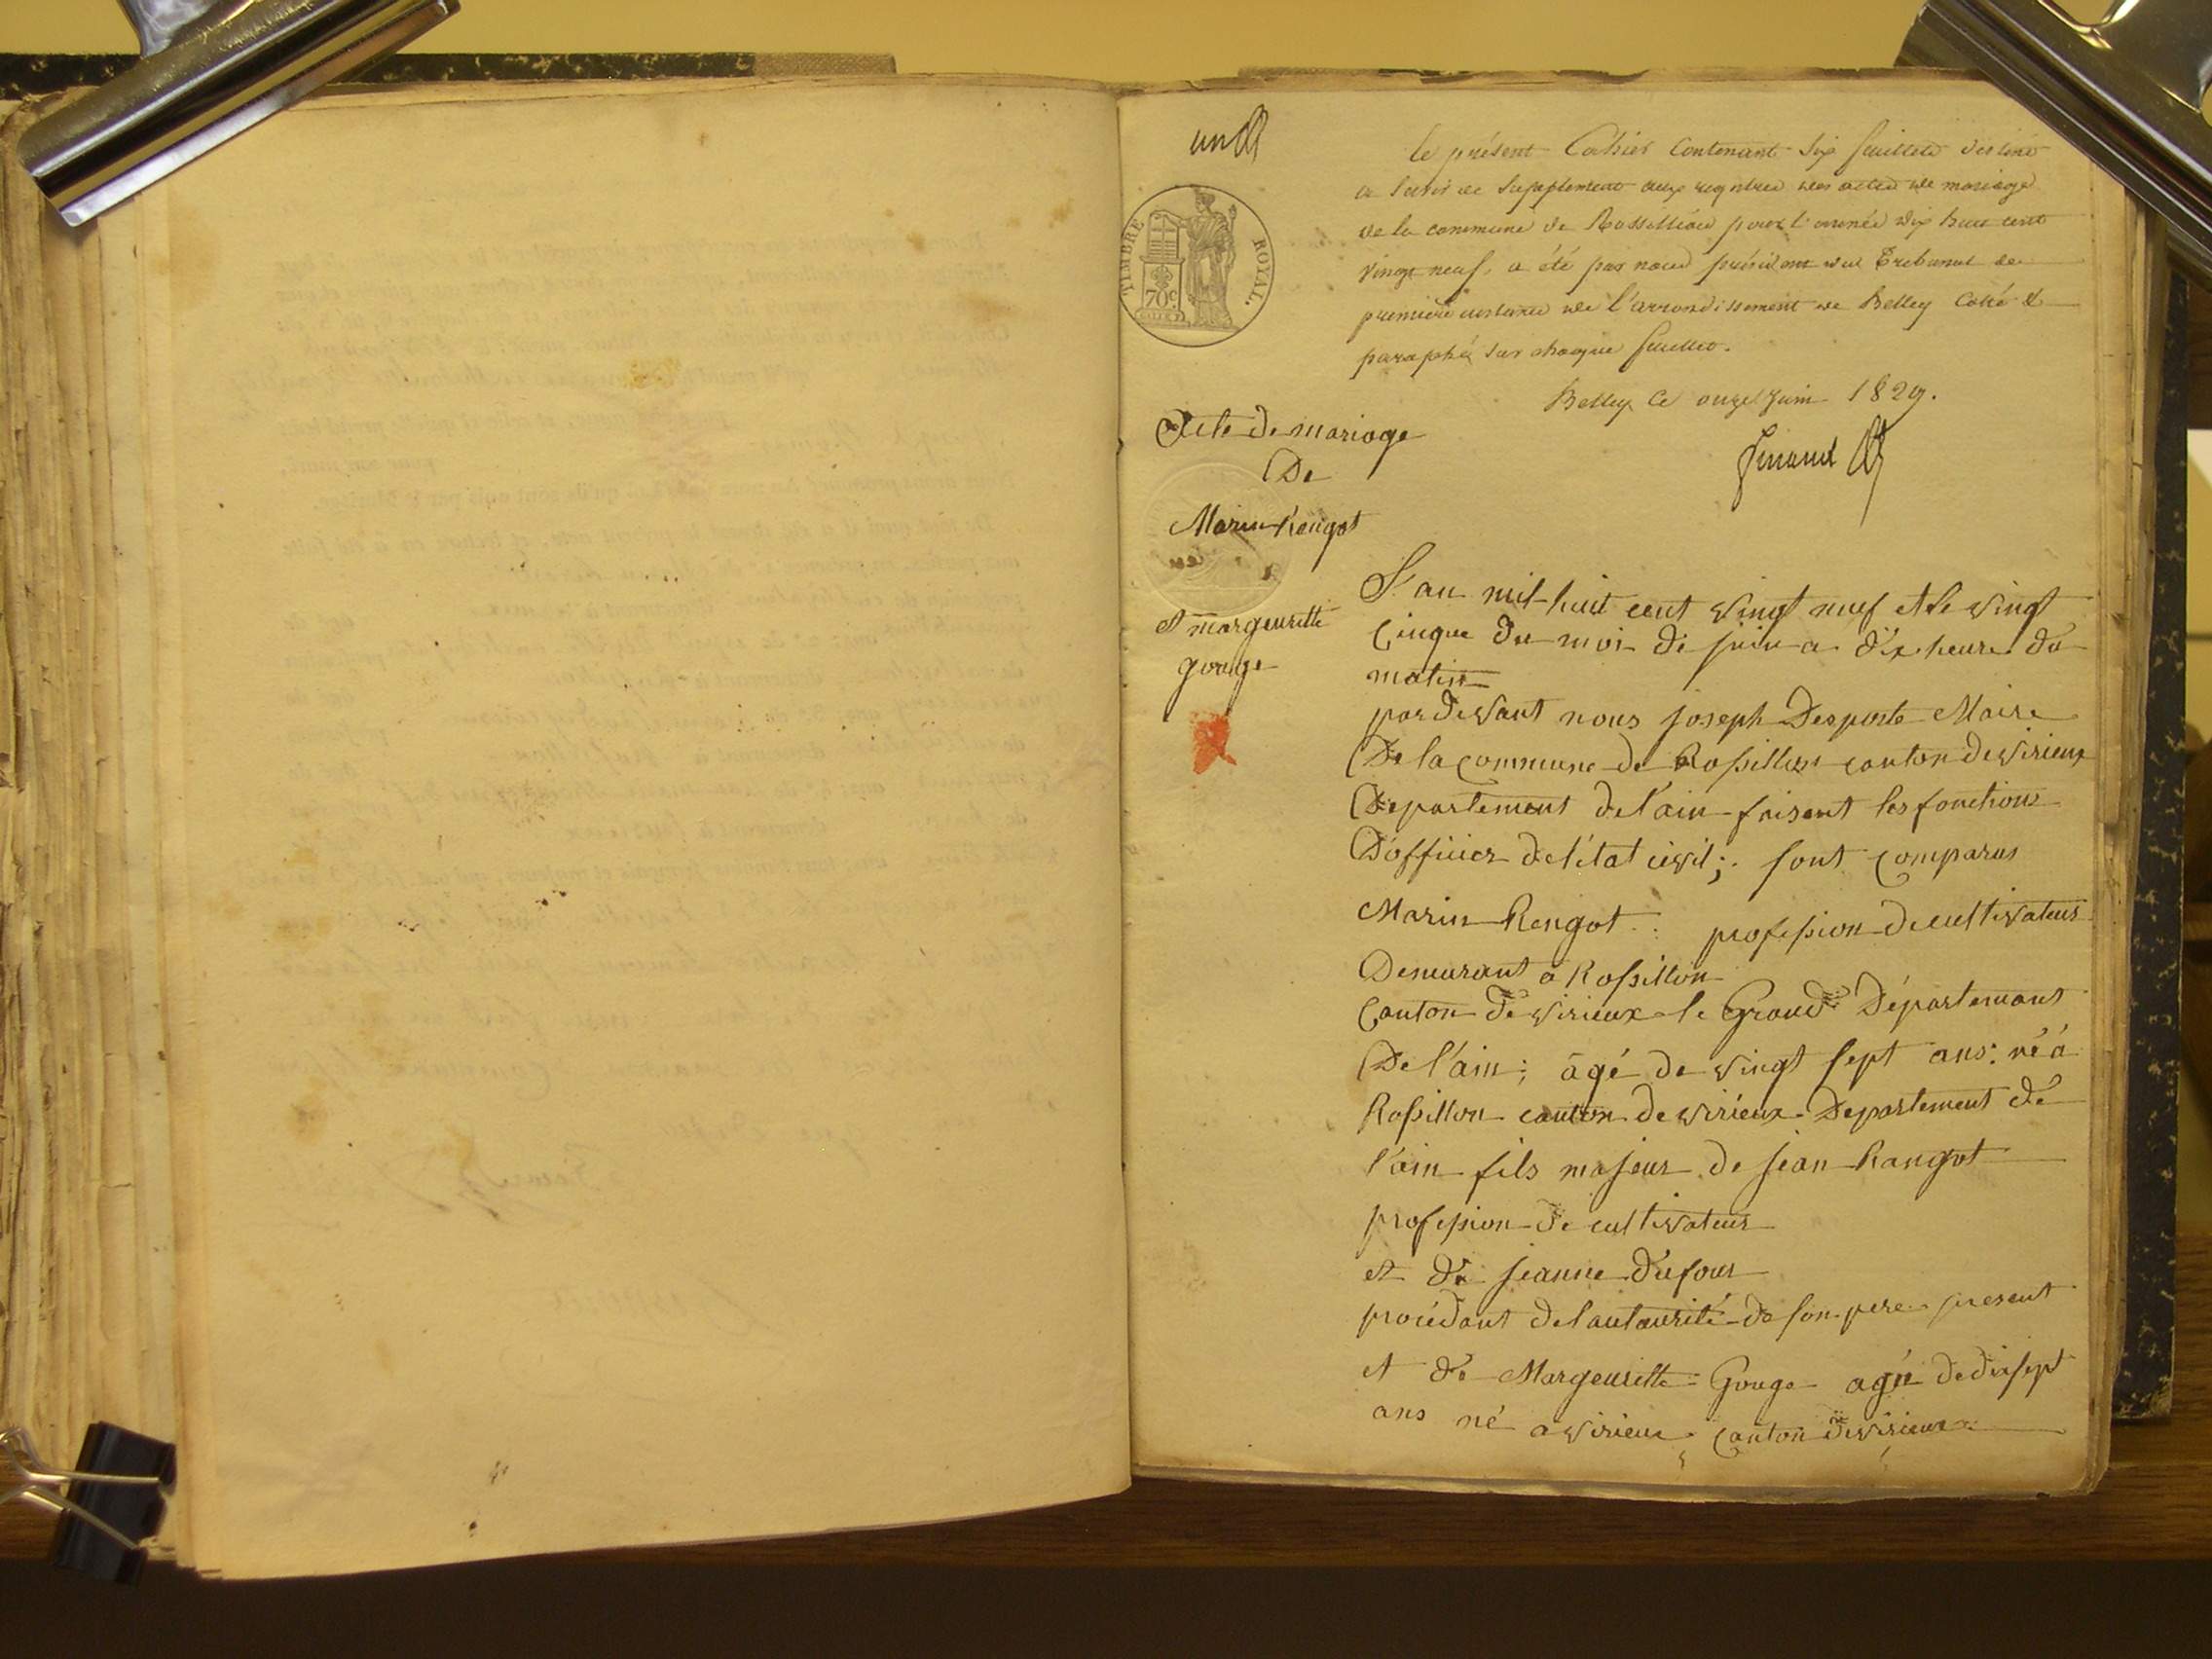 un
le présent Cahier Contenant Six feuillets destiné
a servir de Supplement aux registres des actes de mariage
de la commune de Rossillion pour l'année dix huit cent
vingt neuf, a été par nous président du Tribunal de
premiere instance de l'arrondissement de Belley Coté &
paraphé sur chaque feuillet.
Belley Ce onze Juin 1829.
TIMBRE ROYAL.
70c.
Acte de mariage
De
Marin Rengot
et margeuritte
gouge
L'an mil-huit cent vingt neuf et le vingt
Cinque du moi de juin a dix heure du
matin
par devant nous joseph Desporte Maire
De la Commune de Rossillon canton de virieux
Departement de l'ain faisant les fonctions
D'officier de l'état civil; sont comparus
Marin Rengot profession de cultivateur
Demeurant a Rossillon
Canton de virieux le Grand Département
De l'ain; agé de vingt sept ans: né á
Rossillon canton de virieux Departement de
l'ain fils majeur de jean Rangot
profession de cultivateur
et de jeanne dufour
procédant de l'autaurité de son pere present
et de Margeuritte Gouge agée de dix sept
ans né a virieux canton de virieux